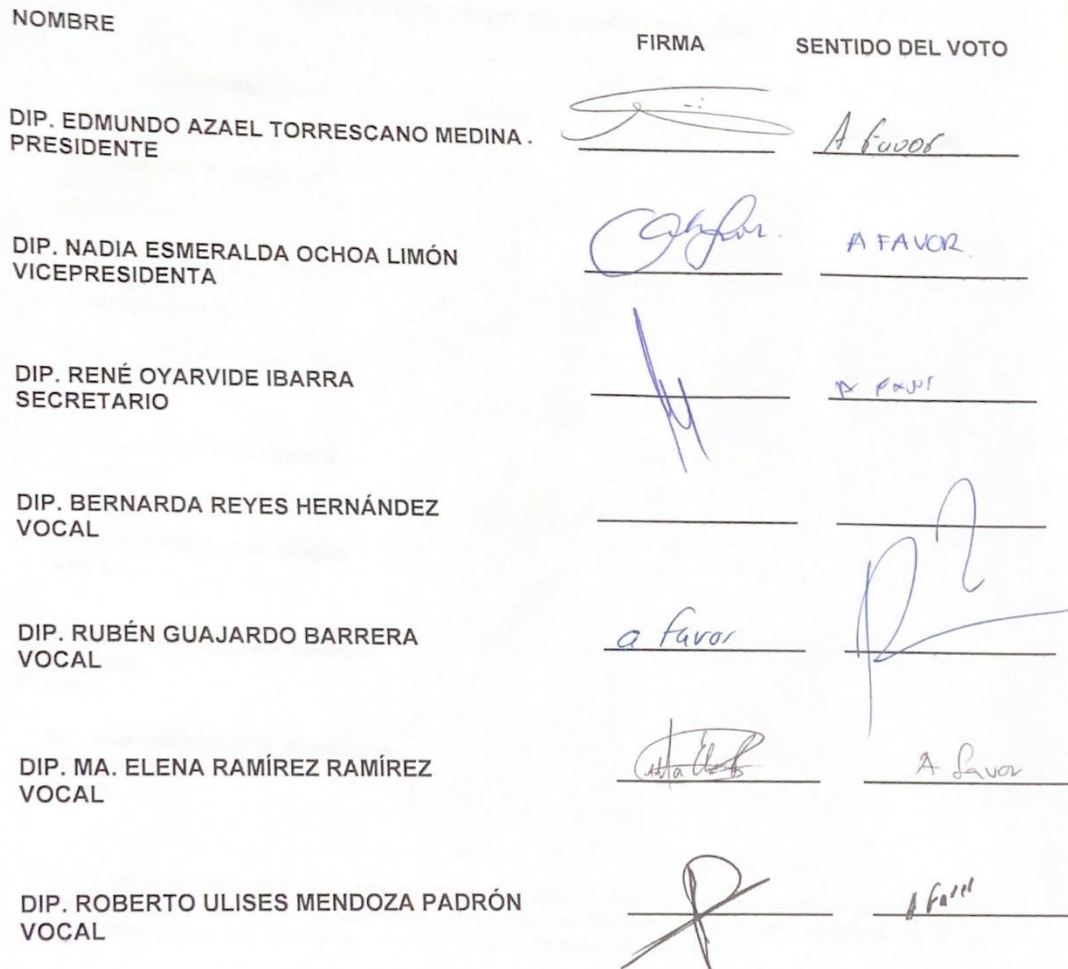 NOMBRE
FIRMA
SENTIDO DEL VOTO
DIP. EDMUNDO AZAEL TORRESCANO MEDINA .
PRESIDENTE
A favor
DIP. NADIA ESMERALDA OCHOA LIMÓN
VICEPRESIDENTA
A FAVOR
DIP. RENÉ OYARVIDE IBARRA
SECRETARIO
A favor
DIP. BERNARDA REYES HERNÁNDEZ
VOCAL
DIP. RUBÉN GUAJARDO BARRERA
VOCAL
a favor
DIP. MA. ELENA RAMÍREZ RAMÍREZ
VOCAL
A favor
DIP. ROBERTO ULISES MENDOZA PADRÓN
VOCAL
A favor